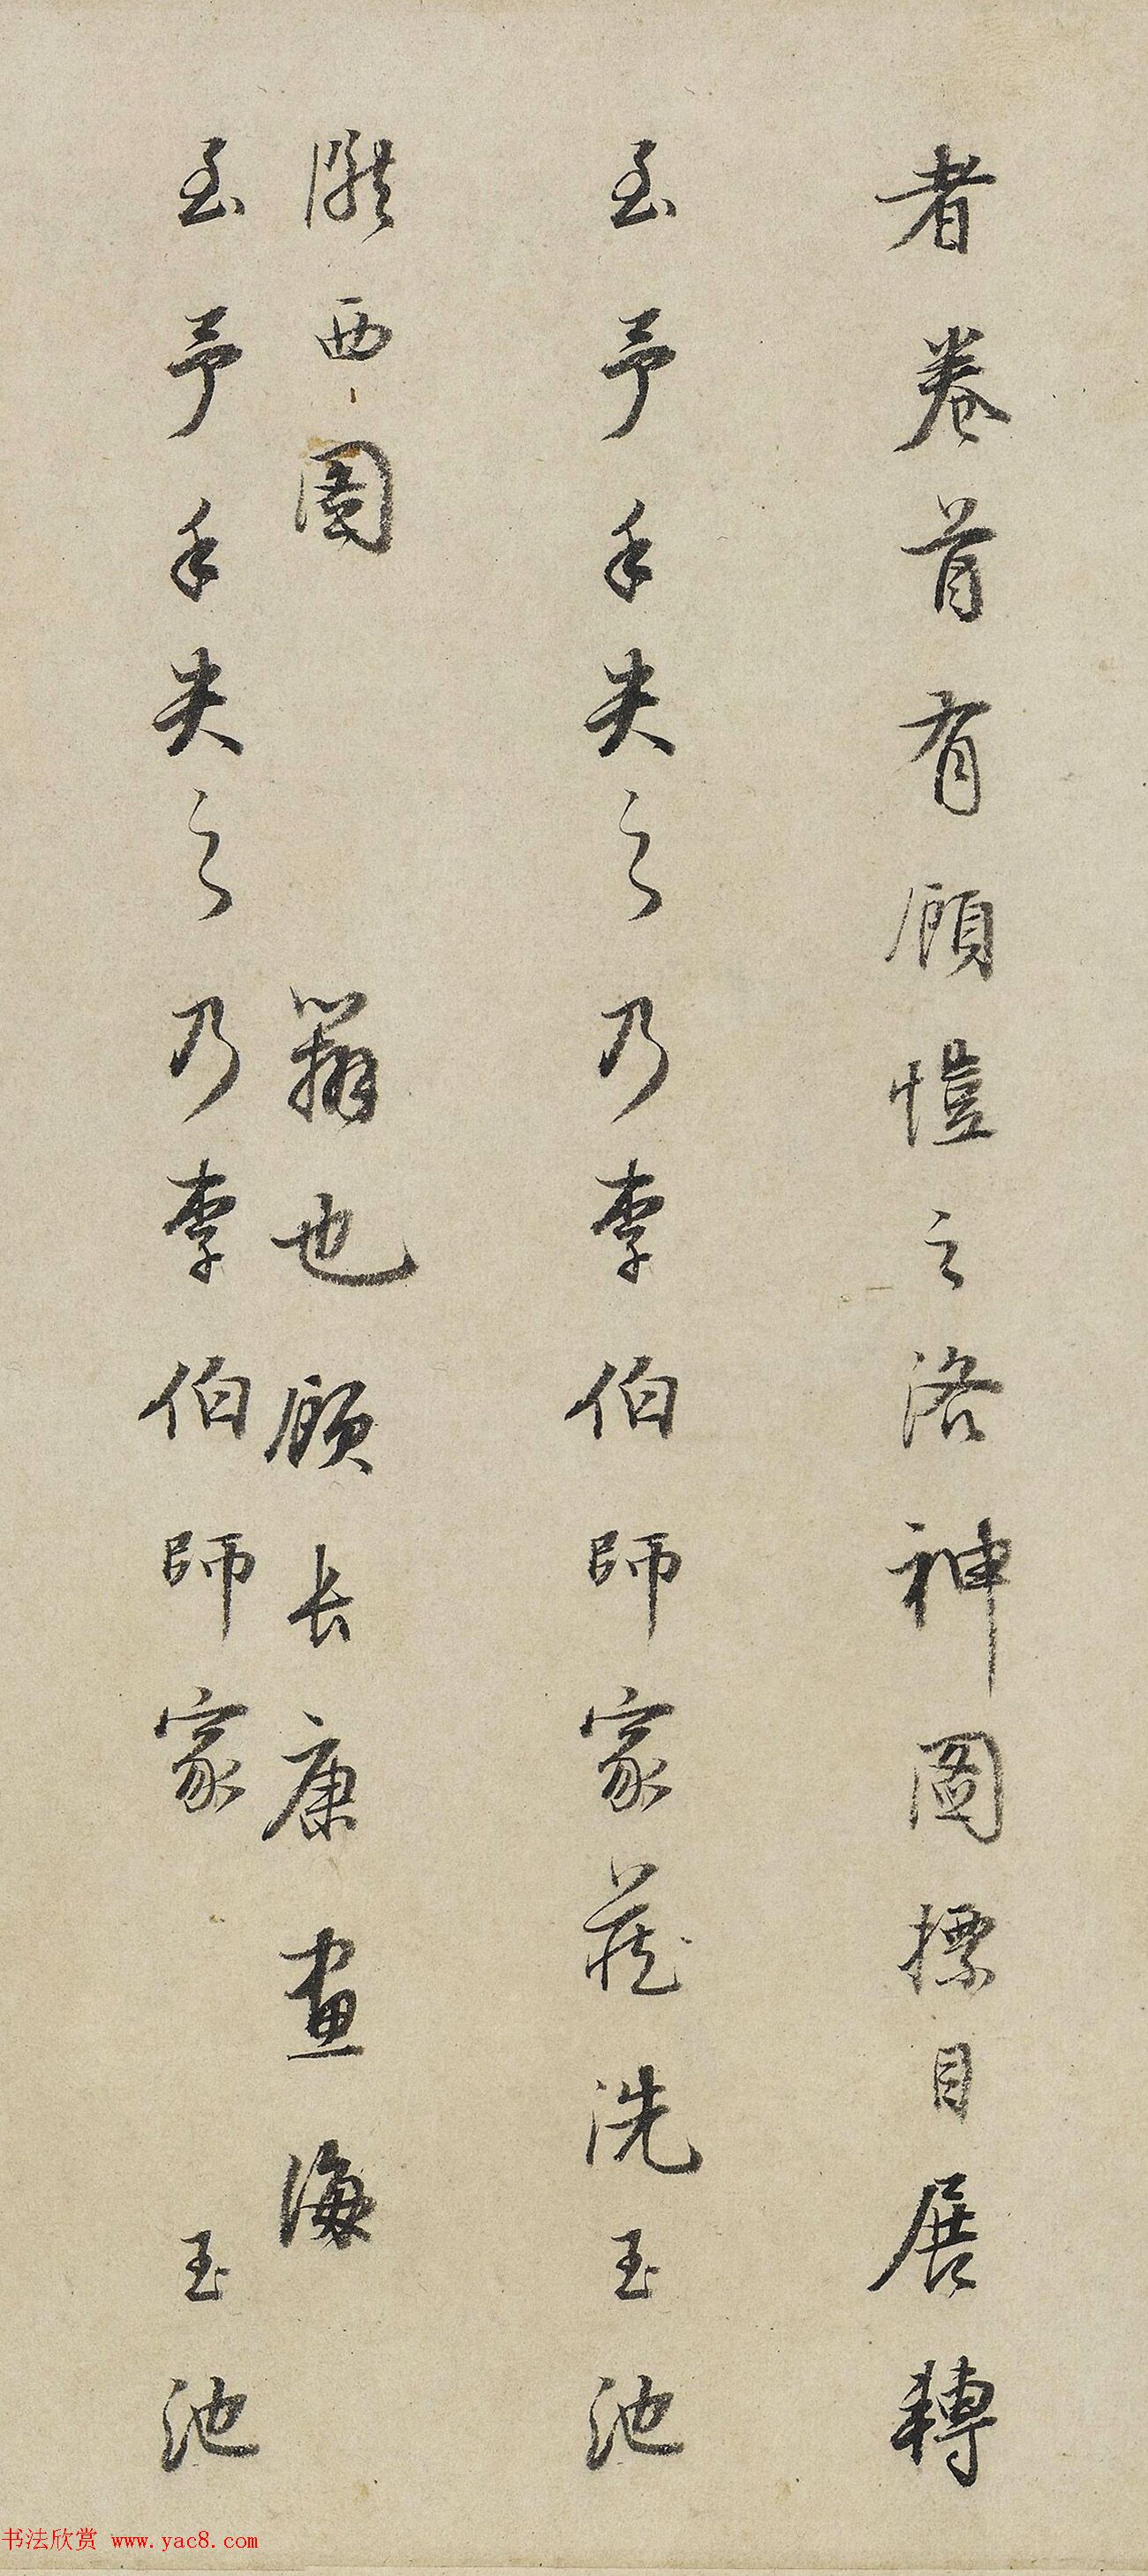 者卷首有顧愷之洛神圖標目展轉
至予手失之乃李伯師家藏洗玉池
西園 也顧長康畫海
至予手失之乃李伯師家 玉池
书法欣赏 www.yac8.com